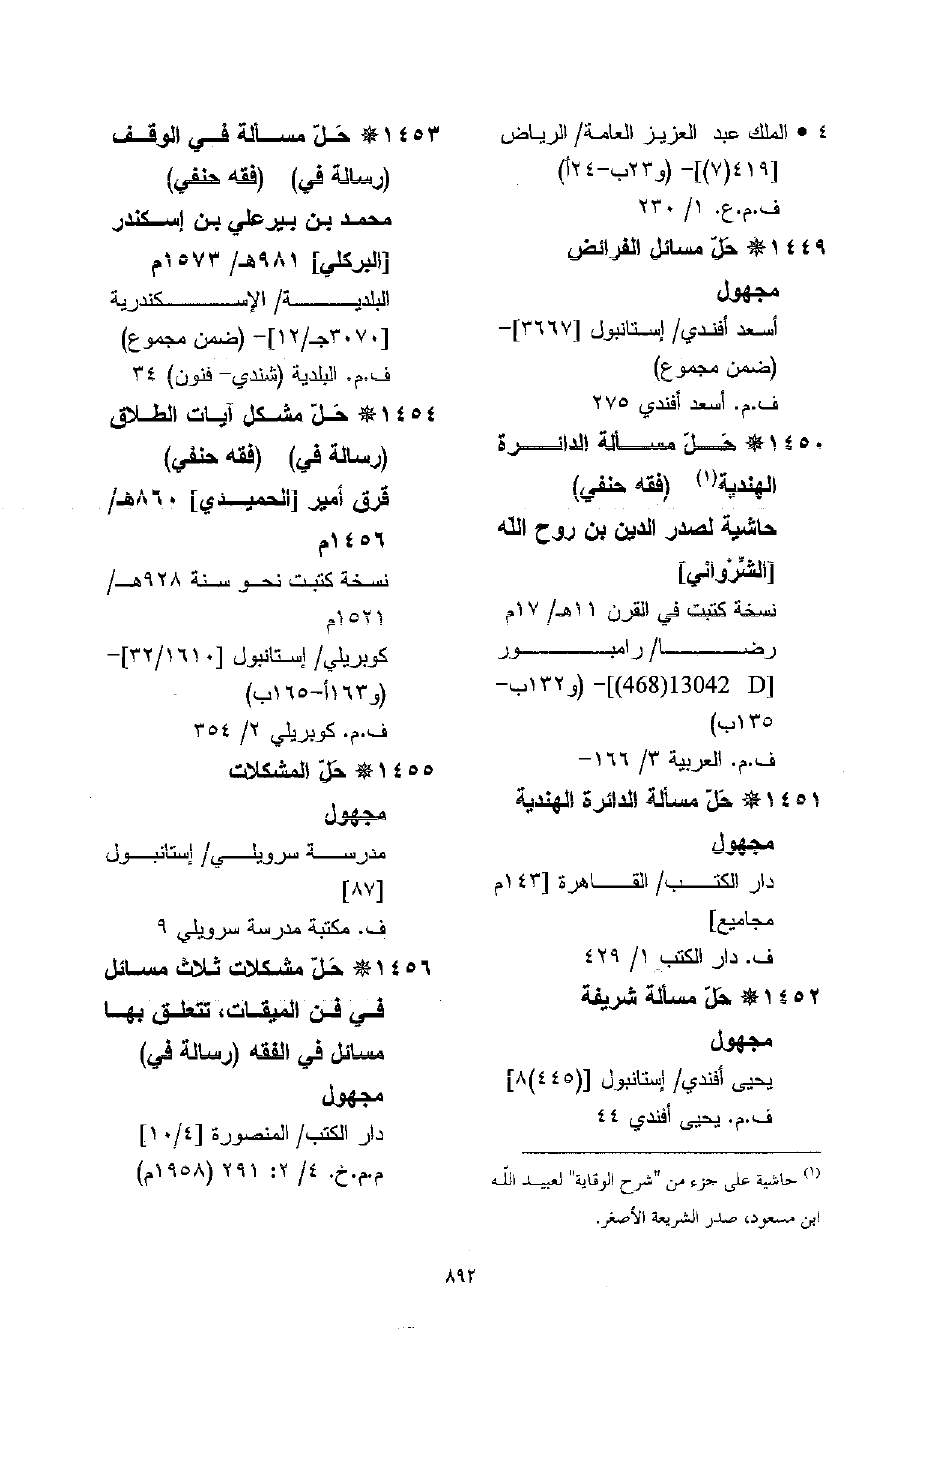 ٤ • الملك عبد العزيز العامة/ الرياض
[٤١٩(٧)]- (و٢٣ب-٢٤أ)
ف.م.ع. ١/ ٢٣٠
١٤٤٩* حَلّ مسائل الفرائض
مجهول
أسعد أفندي/ إستانبول [٣٦٦٧]-
(ضمن مجموع)
ف.م. أسعد أفندي ٢٧٥
١٤٥٠* حَلّ مسألة الدائرة
الهندية(١) (فقه حنفي)
حاشية لصدر الدين بن روح الله
[الشِّرْواني]
نسخة كتبت في القرن ١١هـ/ ١٧م
رضا/ رامبور
[468)13042 D)]- (و١٣٢ب-
١٣٥ب)
ف.م. العربية ٣/ ١٦٦-
١٤٥١* حَلّ مسألة الدائرة الهندية
مجهول
دار الكتب/ القاهرة [١٤٣م
مجاميع]
ف. دار الكتب ١/ ٤٢٩
١٤٥٢* حَلّ مسألة شريفة
مجهول
يحيى أفندي/ إستانبول [(٤٤٥)٨]
ف.م. يحيى أفندي ٤٤
(١) حاشية على جزء من "شرح الوقاية" لعبيد الله
ابن مسعود، صدر الشريعة الأصغر.
١٤٥٣* حَلّ مسألة في الوقف
(رسالة في) (فقه حنفي)
محمد بن بيرعلي بن إسكندر
[البركلي] ٩٨١هـ/ ١٥٧٣م
البلدية/ الإسكندرية
[٣٠٧٠جـ/١٢]- (ضمن مجموع)
ف.م. البلدية (شندي- فنون) ٣٤
١٤٥٤* حَلّ مشكل آيات الطلاق
(رسالة في) (فقه حنفي)
قرق أمير [الحميدي] ٨٦٠هـ/
١٤٥٦م
نسخة كتبت نحو سنة ٩٢٨هـ/
١٥٢١م
كوبريلي/ إستانبول [٣٢/١٦١٠]-
(و١٦٣أ-١٦٥ب)
ف.م. كوبريلي ٢/ ٣٥٤
١٤٥٥* حَلّ المشكلات
مجهول
مدرسة سرويلي/ إستانبول
[٨٧]
ف. مكتبة مدرسة سرويلي ٩
١٤٥٦* حَلّ مشكلات ثلاث مسائل
في فن الميقات، تتعلق بها
مسائل في الفقه (رسالة في)
مجهول
دار الكتب/ المنصورة [١٠/٤]
م.م.خ. ٤/ ٢: ٢٩١ (١٩٥٨م)
٨٩٢